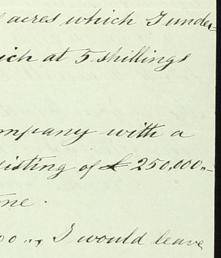 acres which I under-
ich at 5 shillings
ompany with a
isting of £250,000,,-
ne.
00 ,, I would leave